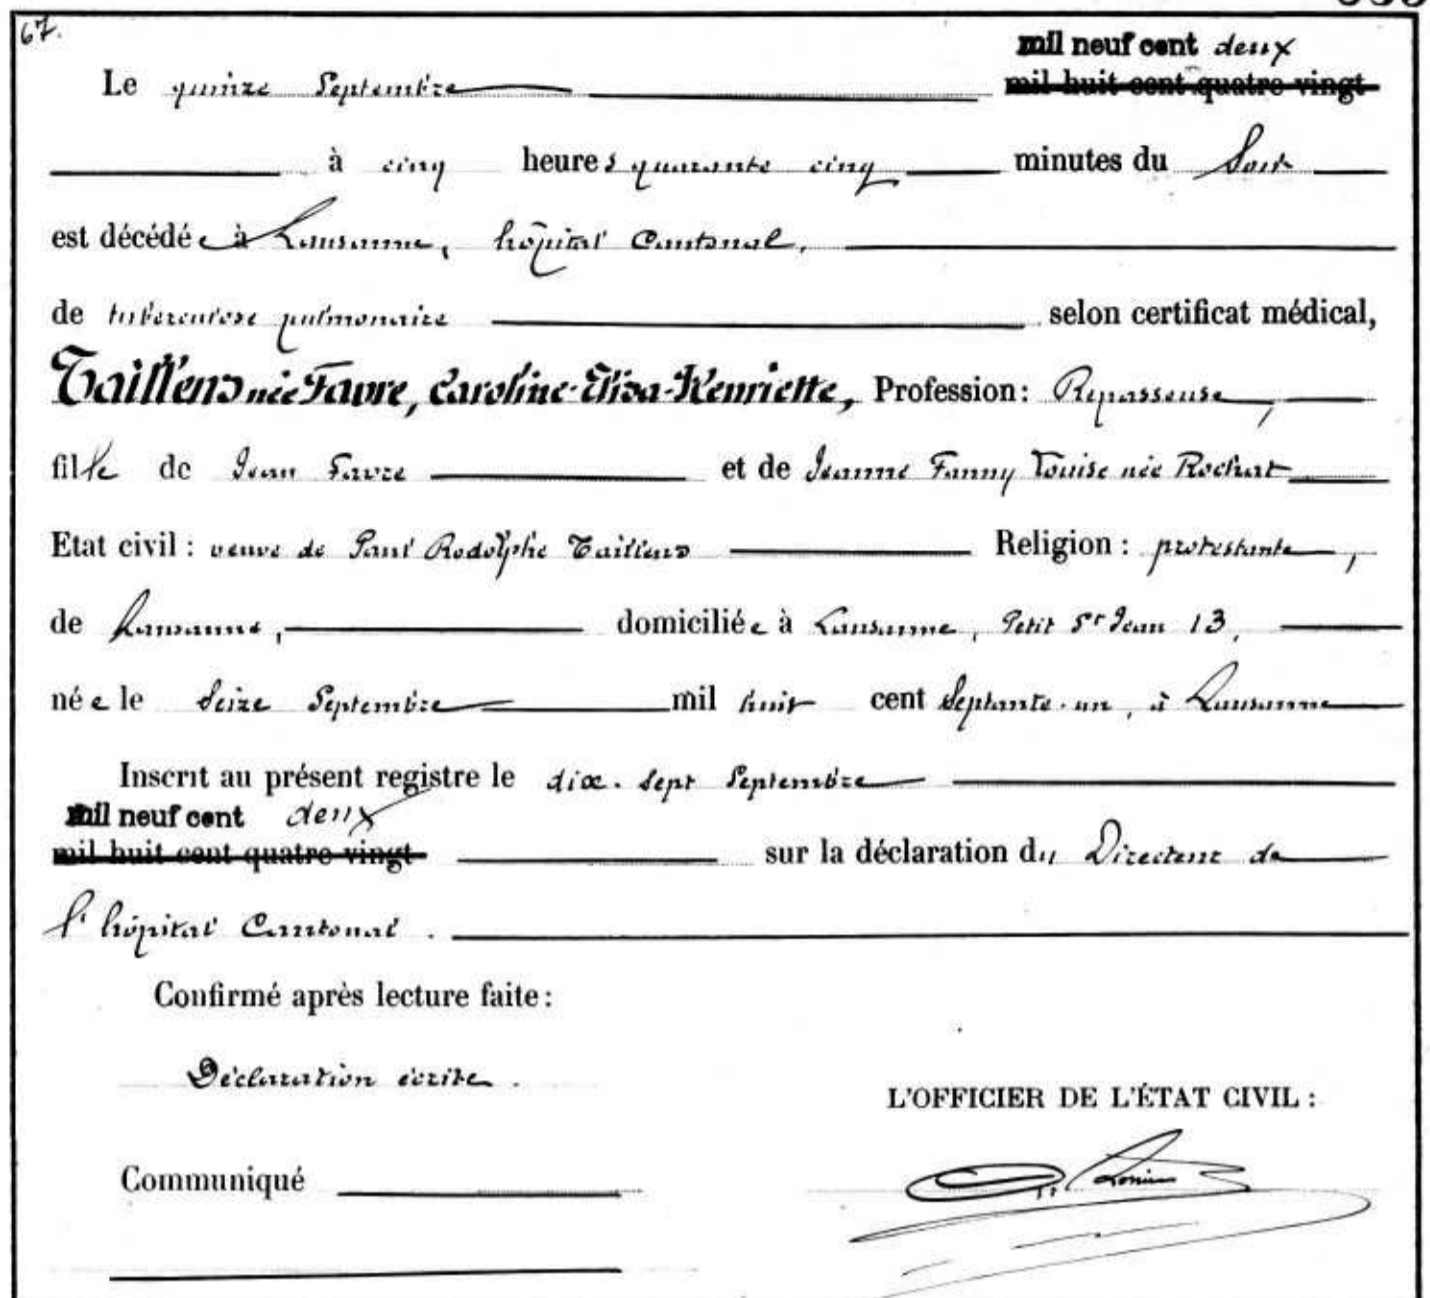 67.
mil neuf cent deux
Le quinze Septembre mil huit cent quatre-vingt
à cinq heures quarante cinq minutes du Soir
est décédée à Lausanne, hôpital Cantonal,
de tuberculose pulmonaire selon certificat médical,
Taillens née Favre, Caroline-Elisa-Henriette, Profession: Repasseuse,
fille de Jean Favre et de Jeanne Fanny Louise née Rochat
Etat civil: veuve de Paul Rodolphe Taillens Religion: protestante,
de Lausanne, domiciliée à Lausanne, Petit St Jean 13,
née le Seize Septembre mil huit cent Septante-un, à Lausanne
Inscrit au présent registre le dix-sept Septembre
mil neuf cent deux
mil huit cent quatre-vingt sur la déclaration du Directeur de
l'hôpital Cantonal.
Confirmé après lecture faite:
Déclaration écrite.
L'OFFICIER DE L'ÉTAT CIVIL:
Communiqué